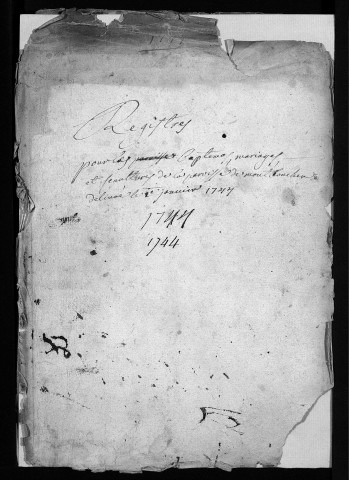 Registres
pour les baptemes, mariages,
et sepultures de la paroisse de
delivré le janvier 1744
1744
1744